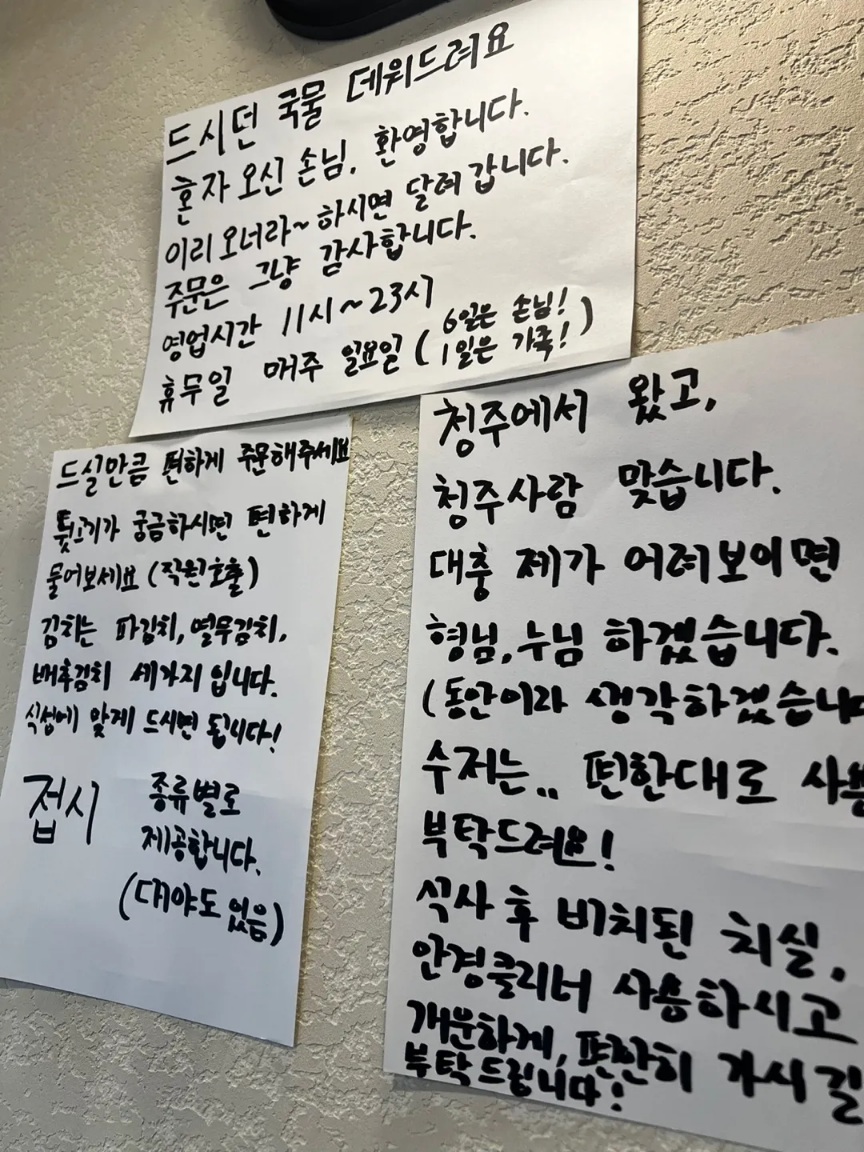 드시던 국물 데워드려요
혼자 오신 손님, 환영합니다.
이리 오너라~ 하시면 달려 갑니다.
주문은 그냥 감사합니다.
영업시간 11시~23시
휴무일 매주 일요일 (6일은 손님!
1일은 가족!)
드실만큼 편하게 주문해주세요
뒷고기가 궁금하시면 편하게
물어보세요 (직원호출)
김치는 파김치, 열무김치,
배추김치 세가지 입니다.
식성에 맞게 드시면 됩니다!
접시 종류별로
제공합니다.
(대야도 있음)
청주에서 왔고,
청주사람 맞습니다.
대충 제가 어려보이면
형님, 누님 하겠습니다.
(동안이라 생각하겠습니
수저는.. 편한대로
부탁드려요!
식사 후 비치된 치실,
안경클리너 사용하시고
개운하게, 편안히 가시길
부탁드립니다!